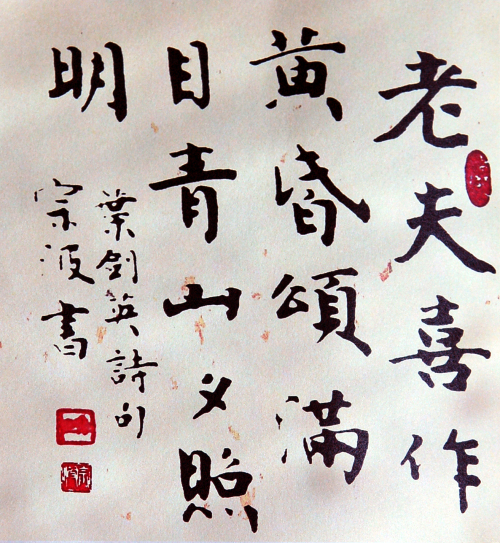 老夫喜作
黄昏頌滿
目青山夕照
明
葉劍英詩句
宗波書